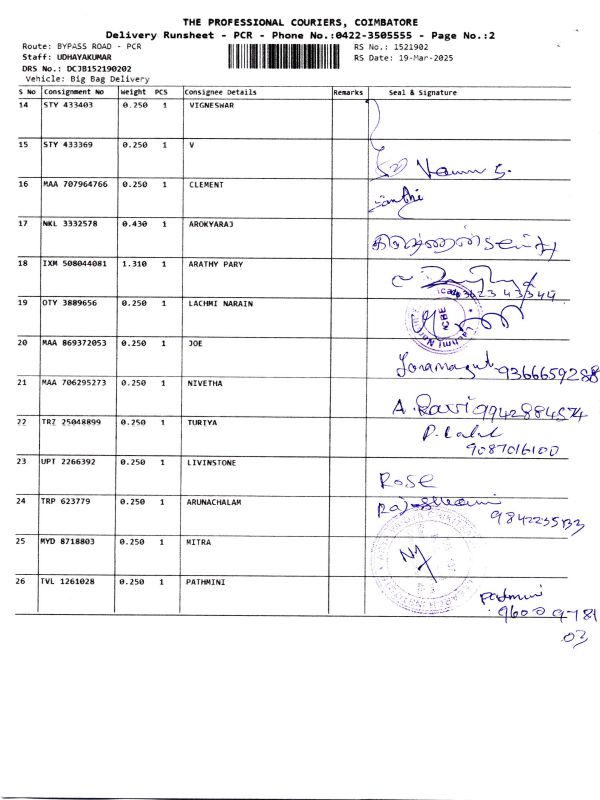 THE PROFESSIONAL COURIERS, COIMBATORE
Delivery Runsheet - PCR - Phone No.:0422-3505555 - Page No.:2
Route: BYPASS ROAD - PCR RS No.: 1521902
Staff: UDHAYAKUMAR RS Date: 19-Mar-2025
DRS No.: DCJB152190202
Vehicle: Big Bag Delivery
S No Consignment No Weight PCS Consignee Details Remarks Seal & Signature
14 STY 433403 0.250 1 VIGNESWAR
15 STY 433369 0.250 1 V
16 MAA 707964766 0.250 1 CLEMENT
17 NKL 3332578 0.430 1 AROKYARAJ
18 IXM 508044081 1.310 1 ARATHY PARY
19 OTY 3889656 0.250 1 LACHMI NARAIN
20 MAA 869372053 0.250 1 JOE
9366659288
21 MAA 706295273 0.250 1 NIVETHA
A. Ravi 9942884574
22 TRZ 25048899 0.250 1 TURIYA
9087016100
23 UPT 2266392 0.250 1 LIVINSTONE
Rose
24 TRP 623779 0.250 1 ARUNACHALAM
25 MYD 8718803 0.250 1 MITRA
26 TVL 1261028 0.250 1 PATHMINI
Padmini
96009781
03